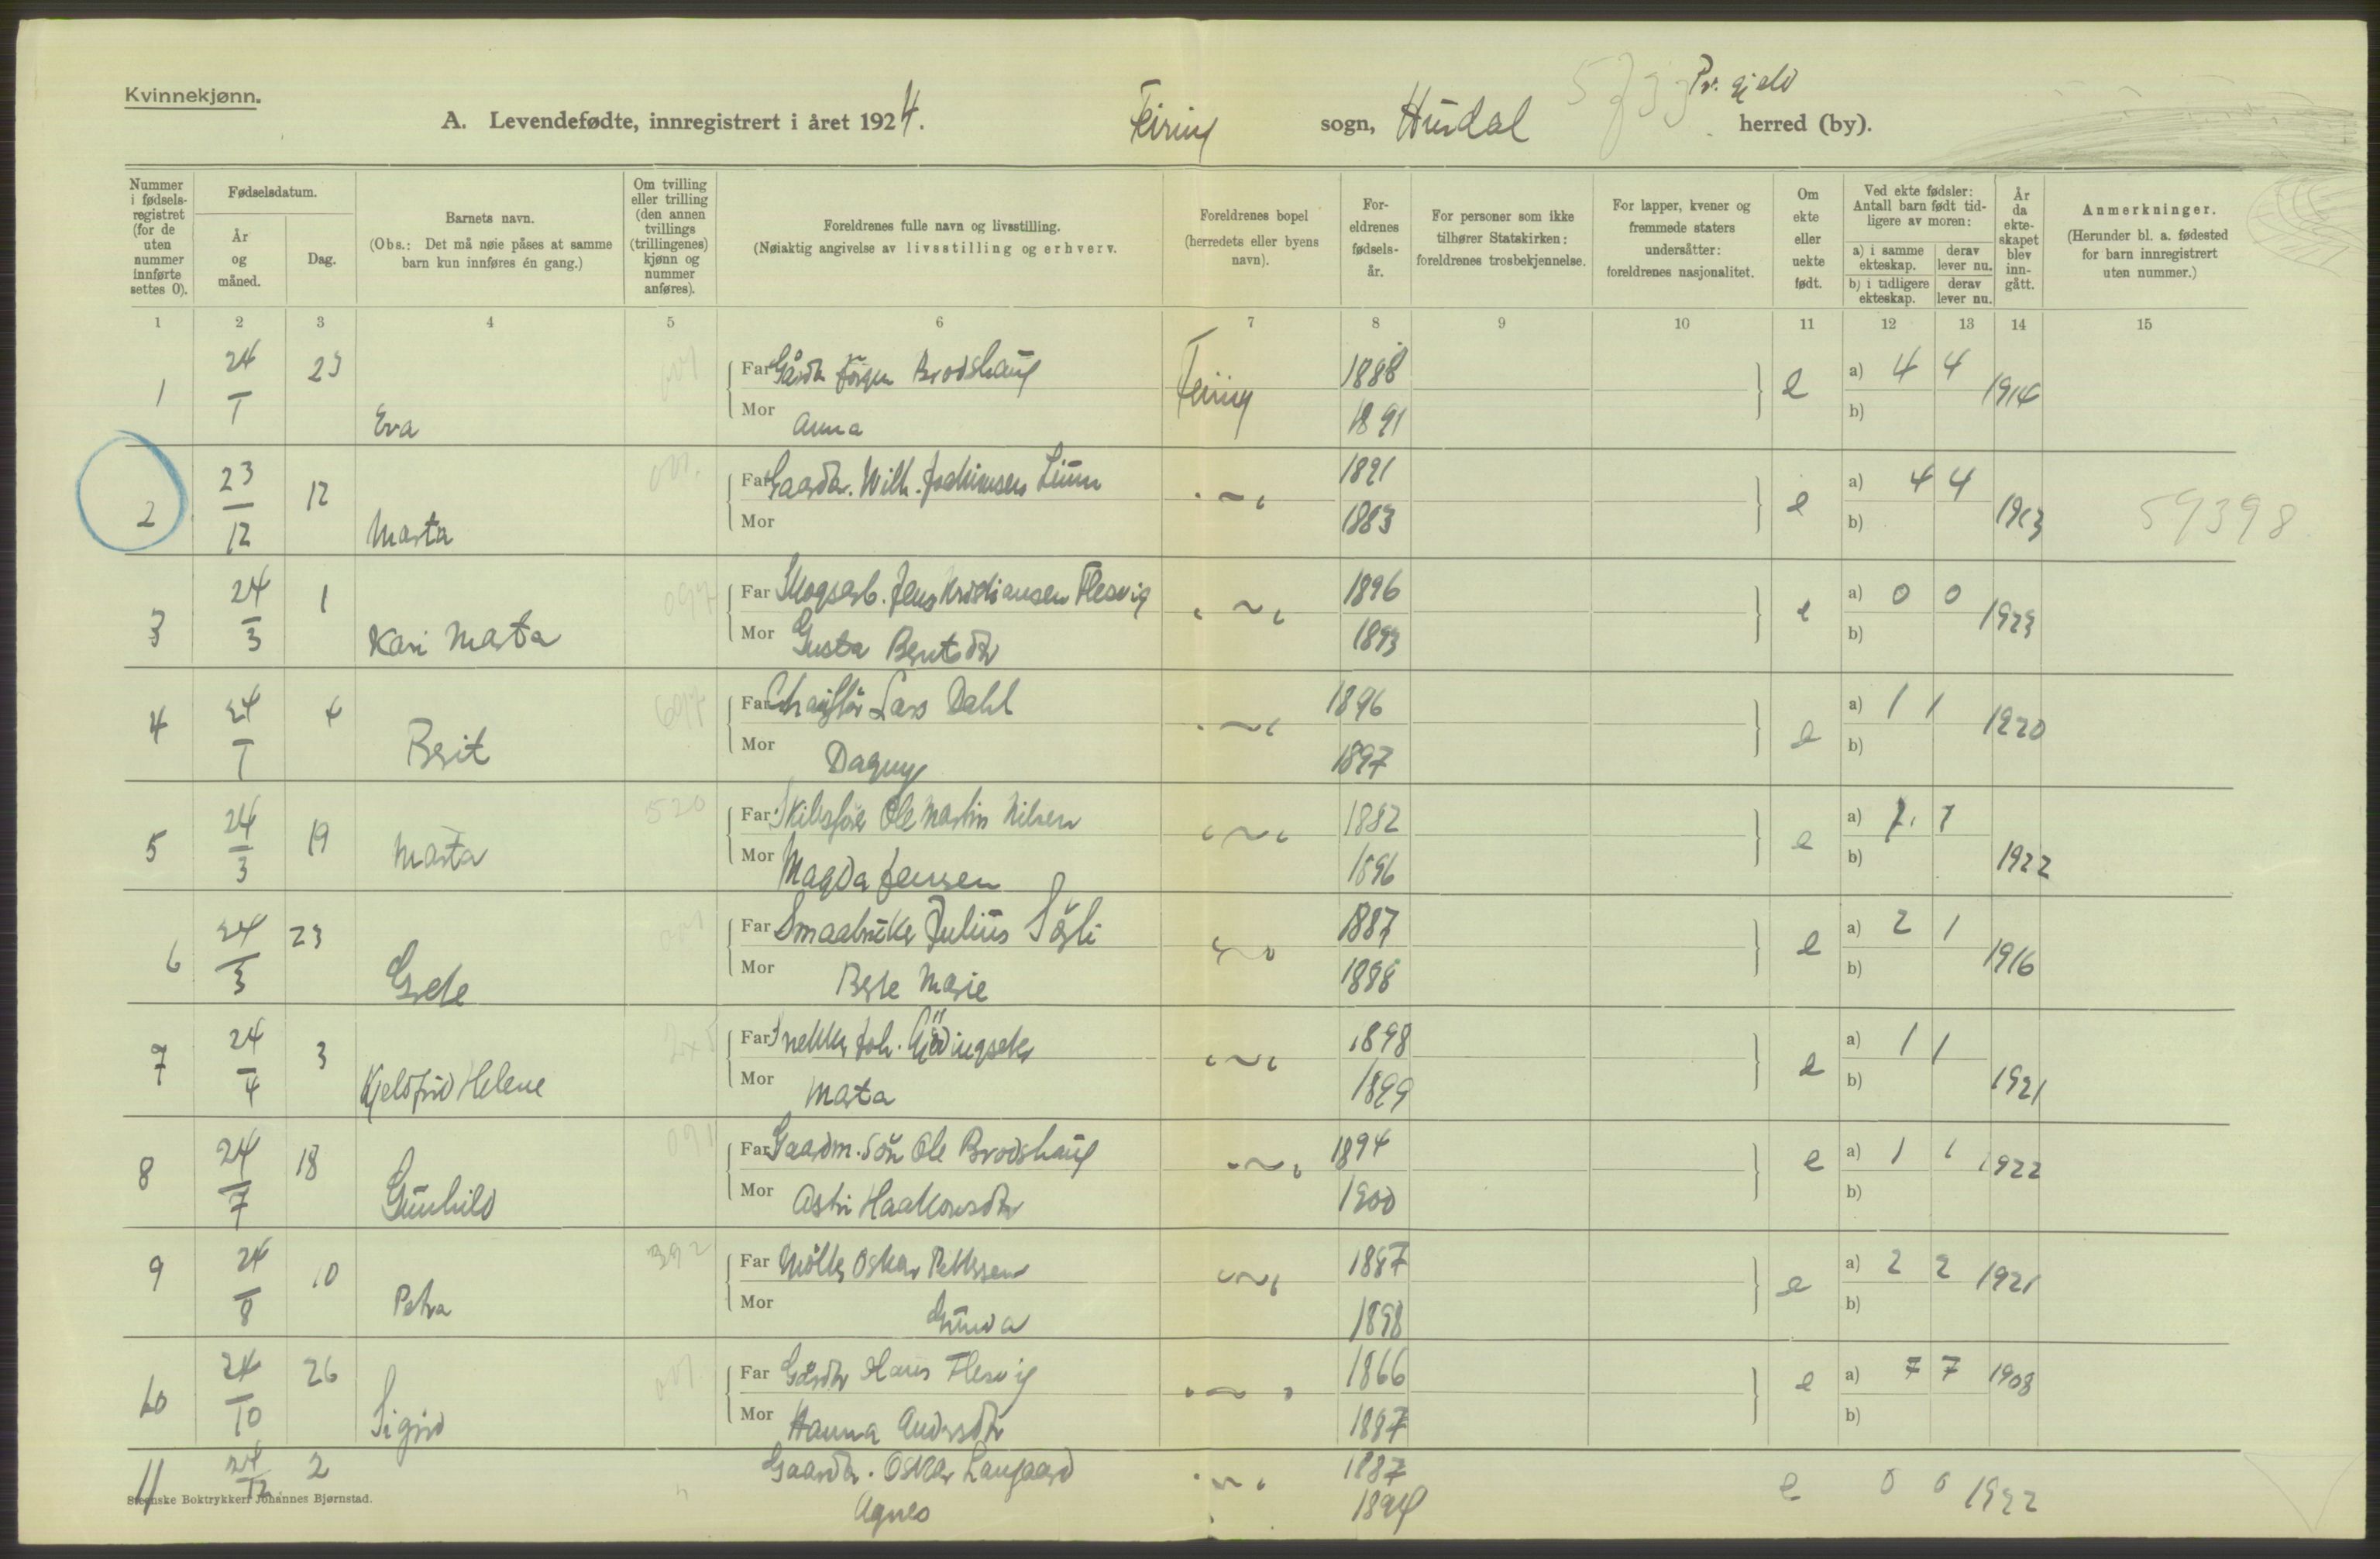 Kvinnekjønn.
A. Levendefødte, innregistrert i året 1924. Feiring sogn, Hurdal Pr. gjeld herred (by).
Nummer i fødsels-registret (for de uten nummer innførte settes 0).
Fødselsdatum.
År og måned.
Dag.
Barnets navn.
(Obs.: Det må nøie påses at samme barn kun innføres én gang.)
Om tvilling eller trilling (den annen tvillings (trillingenes) kjønn og nummer anføres).
Foreldrenes fulle navn og livsstilling.
(Nøiaktig angivelse av livsstilling og erhverv.
Foreldrenes bopel (herredets eller byens navn).
For-eldrenes fødsels-år.
For personer som ikke tilhører Statskirken: foreldrenes trosbekjennelse.
For lapper, kvener og fremmede staters undersåtter: foreldrenes nasjonalitet.
Om ekte eller uekte født.
Ved ekte fødsler: Antall barn født tid-ligere av moren:
a) i samme ekteskap.
derav lever nu.
b) i tidligere ekteskap.
derav lever nu.
År da ekte-skapet blev inn-gått.
Anmerkninger.
(Herunder bl. a. fødested for barn innregistrert uten nummer.)
1 2 3 4 5 6 7 8 9 10 11 12 13 14 15
1 24/1 23 Eva Far Gårdbr Jörgen Brodshaug Feiring 1888 e a) 4 4 1914
Mor Anna 1891 b)
2 23/12 12 Marta Far Gaardbr. Wilh. Jochimsen Linn 1891 e a) 4 4 1913 59398
Mor 1883 b)
3 24/3 1 Kari Marta Far Skogsarb. Jens Kristiansen Flesvig 1896 e a) 0 0 1923
Mor Gusta Berntsdtr 1893 b)
4 24/1 4 Berit Far Chauffør Lars Dahl 1896 e a) 1 1 1920
Mor Dagny 1897 b)
5 24/3 19 Marta 520 Far Skibsfører Ole Martin Nilsen 1882 e a) 1 1
Mor Magda Jensen 1896 b) 1922
6 24/3 23 Grete Far Smaabruker Julius Sögli 1887 e a) 2 1 1916
Mor Berte Marie 1898 b)
7 24/4 3 Kjeldfrid Helene Far Snekker Joh. Gjödingseter 1898 e a) 1 1 1921
Mor Marta 1899 b)
8 24/7 18 Gunhild Far Gaardm. sön Ole Brodshaug 1894 e a) 1 1 1922
Mor Astri Haakonsdtr 1900 b)
9 24/8 10 Petra 392 Far Möller Oskar Pettersen 1887 e a) 2 2 1921
Mor Gunda 1898 b)
10 24/10 26 Sigrid Far Gårdbr Hans Flesvig 1866 e a) 7 7 1908
Mor Hanna Andersdtr 1887 b)
11 24/12 2 Gaardbr. Oskar Langaard 1887 e 0 0 1922
Agnes 1894
Steenske Boktrykkeri Johannes Bjørnstad.